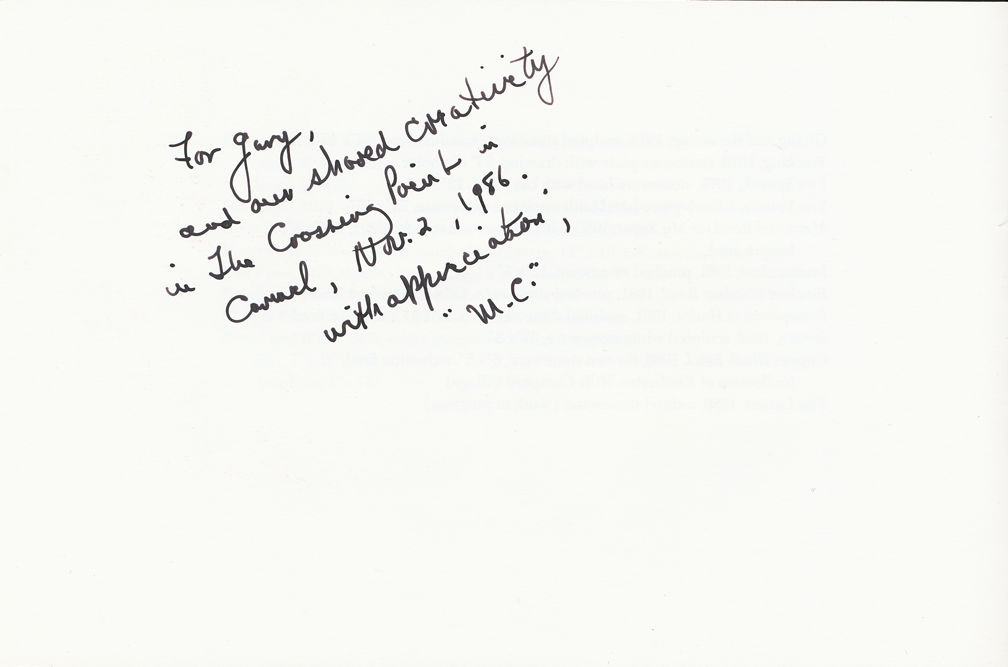 For Gary,
and our shared creativity
in The Crossing Point in
Carmel, Nov. 2, 1986.
with appreciation,
"M.C."